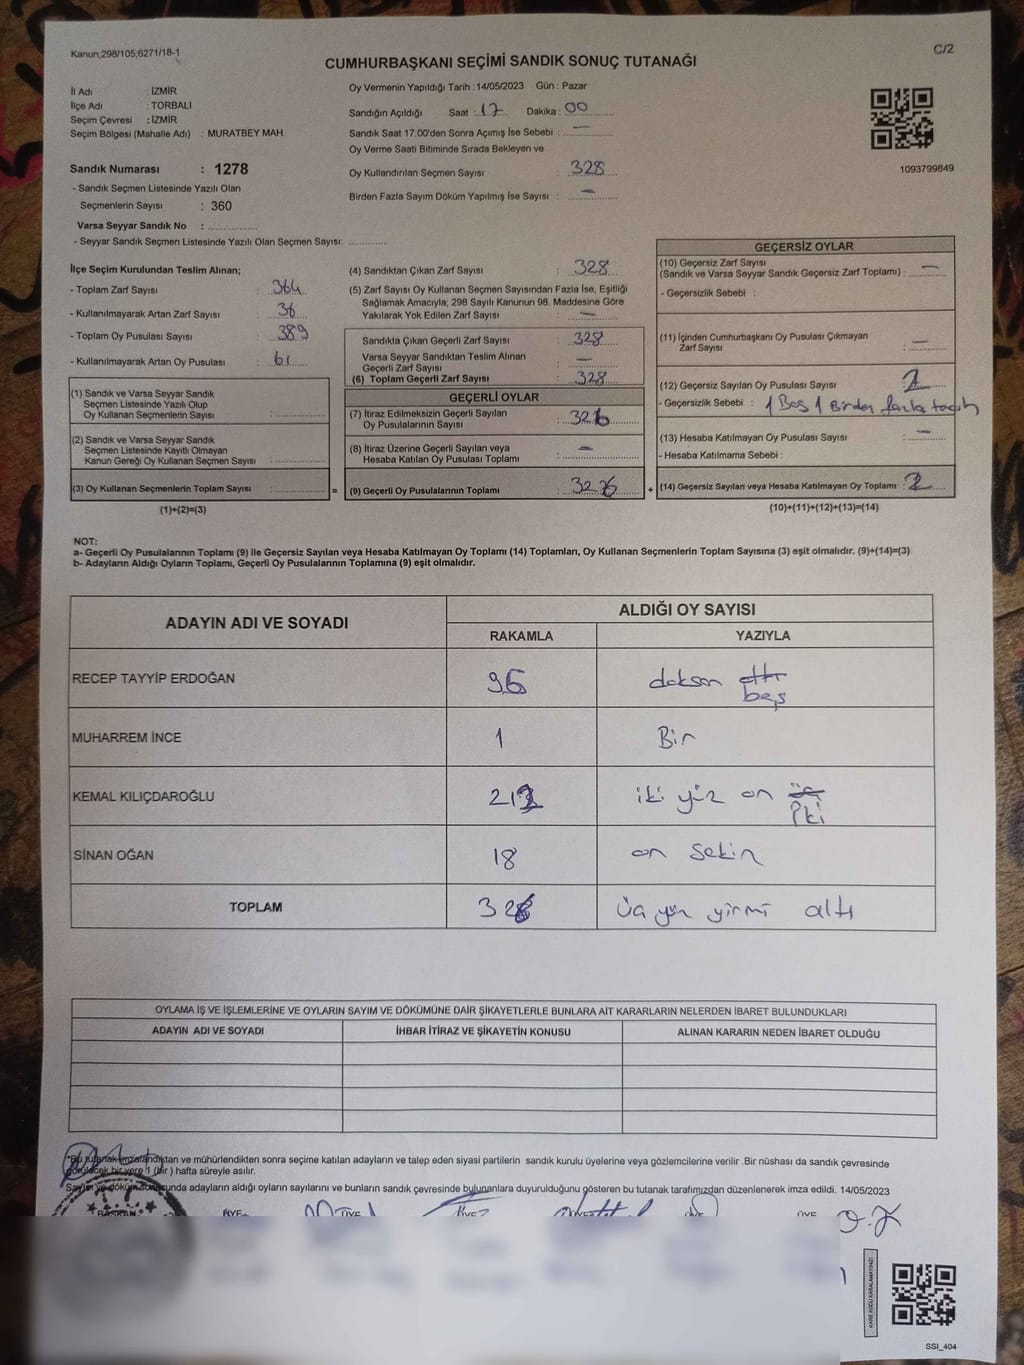 Kanun,298/105;6271/18-1
C/2
CUMHURBAŞKANI SEÇİMİ SANDIK SONUÇ TUTANAĞI
İl Adı : İZMİR
İlçe Adı : TORBALI
Seçim Çevresi : İZMİR
Seçim Bölgesi (Mahalle Adı) : MURATBEY MAH.
Sandık Numarası : 1278
- Sandık Seçmen Listesinde Yazılı Olan
Seçmenlerin Sayısı : 360
Varsa Seyyar Sandık No :
- Seyyar Sandık Seçmen Listesinde Yazılı Olan Seçmen Sayısı:
Oy Vermenin Yapıldığı Tarih : 14/05/2023 Gün : Pazar
Sandığın Açıldığı Saat : 17 Dakika : 00
Sandık Saat 17:00'den Sonra Açımış İse Sebebi : —
Oy Verme Saati Bitiminde Sırada Bekleyen ve
Oy Kullandırılan Seçmen Sayısı : 328
Birden Fazla Sayım Döküm Yapılmış İse Sayısı : —
1093799849
İlçe Seçim Kurulundan Teslim Alınan;
- Toplam Zarf Sayısı : 364
- Kullanılmayarak Artan Zarf Sayısı : 36
- Toplam Oy Pusulası Sayısı : 389
- Kullanılmayarak Artan Oy Pusulası : 61
(1) Sandık ve Varsa Seyyar Sandık
Seçmen Listesinde Yazılı Olup
Oy Kullanan Seçmenlerin Sayısı :
(2) Sandık ve Varsa Seyyar Sandık
Seçmen Listesinde Kayıtlı Olmayan
Kanun Gereği Oy Kullanan Seçmen Sayısı :
(3) Oy Kullanan Seçmenlerin Toplam Sayısı :
(1)+(2)=(3)
(4) Sandıktan Çıkan Zarf Sayısı : 328
(5) Zarf Sayısı Oy Kullanan Seçmen Sayısından Fazla İse, Eşitliği
Sağlamak Amacıyla; 298 Sayılı Kanunun 98. Maddesine Göre
Yakılarak Yok Edilen Zarf Sayısı : —
Sandıkta Çıkan Geçerli Zarf Sayısı : 328
Varsa Seyyar Sandıktan Teslim Alınan
Geçerli Zarf Sayısı : —
(6) Toplam Geçerli Zarf Sayısı : 328
GEÇERLİ OYLAR
(7) İtiraz Edilmeksizin Geçerli Sayılan
Oy Pusulalarının Sayısı : 326
(8) İtiraz Üzerine Geçerli Sayılan veya
Hesaba Katılan Oy Pusulası Toplamı : —
= (9) Geçerli Oy Pusulalarının Toplamı : 326 +
GEÇERSİZ OYLAR
(10) Geçersiz Zarf Sayısı
(Sandık ve Varsa Seyyar Sandık Geçersiz Zarf Toplamı) : —
- Geçersizlik Sebebi :
(11) İçinden Cumhurbaşkanı Oy Pusulası Çıkmayan
Zarf Sayısı : —
(12) Geçersiz Sayılan Oy Pusulası Sayısı : 2
- Geçersizlik Sebebi : 1 Boş 1 Birden fazla
(13) Hesaba Katılmayan Oy Pusulası Sayısı : —
- Hesaba Katılmama Sebebi :
(14) Geçersiz Sayılan veya Hesaba Katılmayan Oy Toplamı : 2
(10)+(11)+(12)+(13)=(14)
NOT:
a- Geçerli Oy Pusulalarının Toplamı (9) ile Geçersiz Sayılan veya Hesaba Katılmayan Oy Toplamı (14) Toplamları, Oy Kullanan Seçmenlerin Toplam Sayısına (3) eşit olmalıdır. (9)+(14)=(3)
b- Adayların Aldığı Oyların Toplamı, Geçerli Oy Pusulalarının Toplamına (9) eşit olmalıdır.
ADAYIN ADI VE SOYADI
ALDIĞI OY SAYISI
RAKAMLA YAZIYLA
RECEP TAYYİP ERDOĞAN 95 doksan altı
beş
MUHARREM İNCE 1 Bir
KEMAL KILIÇDAROĞLU 212 iki yüz on üç
iki
SİNAN OĞAN 18 on sekiz
TOPLAM 326 üç yüz yirmi altı
OYLAMA İŞ VE İŞLEMLERİNE VE OYLARIN SAYIM VE DÖKÜMÜNE DAİR ŞİKAYETLERLE BUNLARA AİT KARARLARIN NELERDEN İBARET BULUNDUKLARI
ADAYIN ADI VE SOYADI İHBAR İTİRAZ VE ŞİKAYETİN KONUSU ALINAN KARARIN NEDEN İBARET OLDUĞU
*Bu tutanak imzalandıktan ve mühürlendikten sonra seçime katılan adayların ve talep eden siyasi partilerin sandık kurulu üyelerine veya gözlemcilerine verilir .Bir nüshası da sandık çevresinde
görülecek bir yere 1 (bir ) hafta süreyle asılır.
Sayım ve döküm sonucunda adayların aldığı oyların sayılarını ve bunların sandık çevresinde bulunanlara duyurulduğunu gösteren bu tutanak tarafımızdan düzenlenerek imza edildi. 14/05/2023
BAŞKAN ÜYE ÜYE ÜYE ÜYE ÜYE ÜYE
KARE KODU KARALAMAYINIZ!
SSI_404